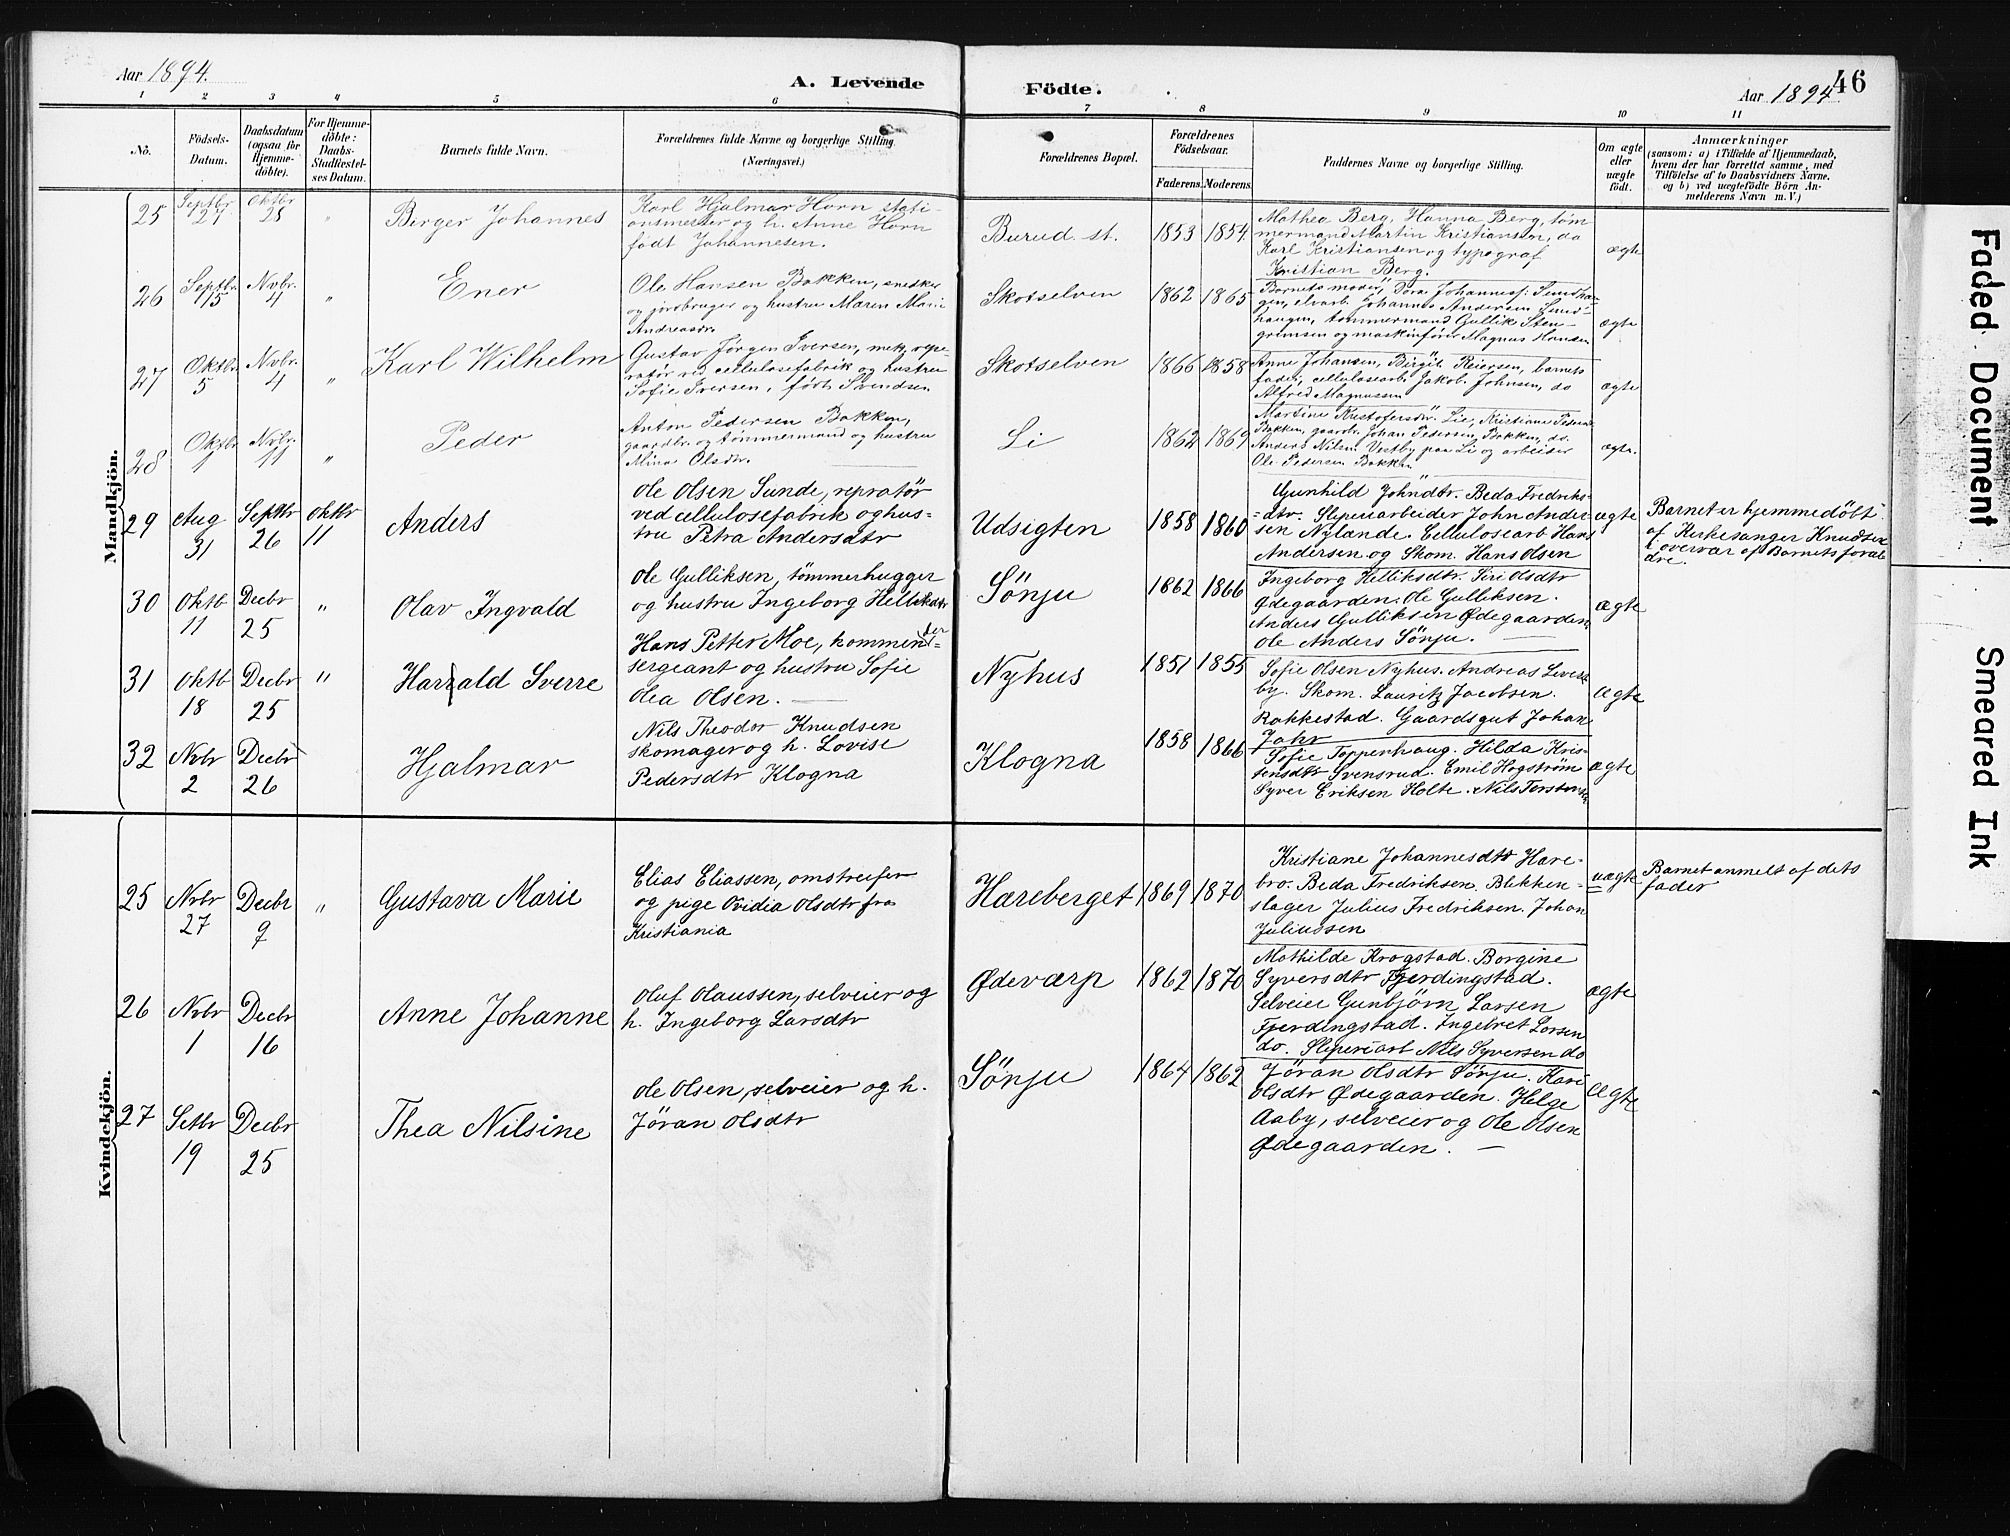 Aar 1894.
A. Levende Födte.
Aar 1894
46
1 2 3 4 5 6 7 8 9 10 11
No.
Födsels-Datum.
Daabsdatum (ogsaa for Hjemme-döbte).
For Hjemme-döbte: Daabs-Stadfæstel-ses Datum.
Barnets fulde Navn.
Forældrenes fulde Navne og borgerlige Stilling (Næringsvei.)
Forældrenes Bopæl.
Forældrenes Födselsaar.
Faderens.
Moderens.
Faddernes Navne og borgerlige Stilling.
Om ægte eller uægte födt.
Anmærkninger
(saasom: a) i Tilfælde af Hjemmedaab,
hvem der har forrettet samme, med
Tilföielse af to Daabsvidners Navne.
og b) ved uægtefödte Börn An-
melderens Navn m. V.)
Mandkjön.
25
Septbr 27
Oktbr 28
"
Birger Johannes
Karl Hjalmar Horn stati-
onsmester og h. Anne Horn
født Johannesen.
Burud st.
1853
1854.
Mathea Berg, Hanna Berg, töm-
mermand Martin Kristiansen, do
Karl Kristiansen og typograf
Kristian Berg.
ægte
26
Septbr. 15
Novbr. 4
"
Ener
Ole Hansen Bakken, snedker
og jordbruger og hustru Maren Marie
Andreasdr.
Skotselven
1862
1865
Barnets moder, Dora Johannesf. Sundhau-
gen, elvarb. Johannes Andersen Sund-
haugen, tömmermand Gullik Sten-
grimsen og maskinfører Magnus Hansen
ægte
27
Oktbr. 5
Novbr. 4
"
Karl Wilhelm
Gustav Jörgen Iversen, mek. repe-
ratør ved cellulosefabrik og hustru
Sofie Iversen, født Svendsen
Skotselven
1866
1858
Anne Johansen, Birgit Reiersen, barnets
fader, cellulosearb. Jakob Johnsen, do
Alfred Magnussen
ægte
28
Oktbr. 1
Novbr. 11
"
Peder
Anton Pedersen Bakken,
gaardbr. og tømmermand og hustru
Mina Olsdtr.
Li
1862
1869
Martine Kristofersdr. Lie, Kristiane Peders
Bakken, gaardbr. Johan Pedersen Bakken, do.
Anders Nilsen Vestby paa Li og arbeider
Ole Pedersen Bakken
ægte.
29
Aug 31
Septbr 26
Oktbr 11
Anders
Ole Olsen Sunde, repratør
ved cellulosefabrik og hus-
tru Petra Andersdtr
Udsigten
1858
1860
Gunhild Johndtr. Beda Fredriks-
=dtr. Sliperiarbeider John Ander-
sen Nylande. Cellulosearb Hans
Andersen og Skom. Hans Olsen
ægte
Barnet er hjemmedöbt
af Kirkesanger Knudsen
i overvær af Barnets foræl-
dre.
30
Oktb 11
Decbr 25
"
Olav Ingvald
Ole Gulliksen, tømmerhugger
og hustru Ingeborg Helliksdtr
Sönju
1862
1866
Ingeborg Helliksdtr. Siri Olsdtr
Ødegaarden. Ole Gulliksen.
Anders Gulliksen Ødegaarden,
Ole Anders Sønju.
ægte
31
Oktb 18
Decbr 25
"
Harald Sverre
Hans Petter Moe, kommander
sergeant og hustru Sofie
Olea Olsen.
Nyhus
1851
1855
Sofie Olsen Nyhus. Andreas
by. Skom. Lauritz Jacobsen.
Rakkestad. Gaardsgut Johan
Jahr
Ægte
32
Novbr 2
Decbr 26
Hjalmar
Nils Theodor Knudsen
skomager og h. Lovise
Pedersdtr Klogna
Klogna
1858
1866
Sofie Toppenhaug. Hilda Kris-
sensdtr Svensrud. Emil Hogström
Syver Eriksen Holte. Nils Torstensen
ægte
Kvindekjön.
25
Novbr 27
Decbr 9
"
Gustava Marie
Elias Eliassen, omstreifer
og pige Ovidia Olsdtr fra
Kristiania
Hareberget
1869
1870
Kristiane Johannesdtr Hare-
bro. Beda Fredriksen. Blikken-
slager Julius Fredriksen. Johan
Juliussen
uægte
Barnet anmelt af dets
fader
26
Novbr 1
Decbr 16
Anne Johanne
Oluf Olaussen, selveier og
h. Ingeborg Larsdtr
Ødeværp
1862
1870
Mathilde Krogstad. Borgine
Syversdtr Fjerdingstad.
Selveier Gunbjörn Larsen
Fjerdingstad. Ingebret Larsen
do. Sliperiarb Nils Syversen do
ægte
27
Setbr 19
Decbr 25
Thea Nilsine
Ole Olsen, selveier og h.
Jøran Olsdtr
Sönju
1864
1862
Jøran Olsdtr Sønju. Kari
Olsdtr Ødegaarden. Helge
Aaby, selveier og Ole Olsen
Ødegaarden.
Ægte
Faded Document
Smeared Ink